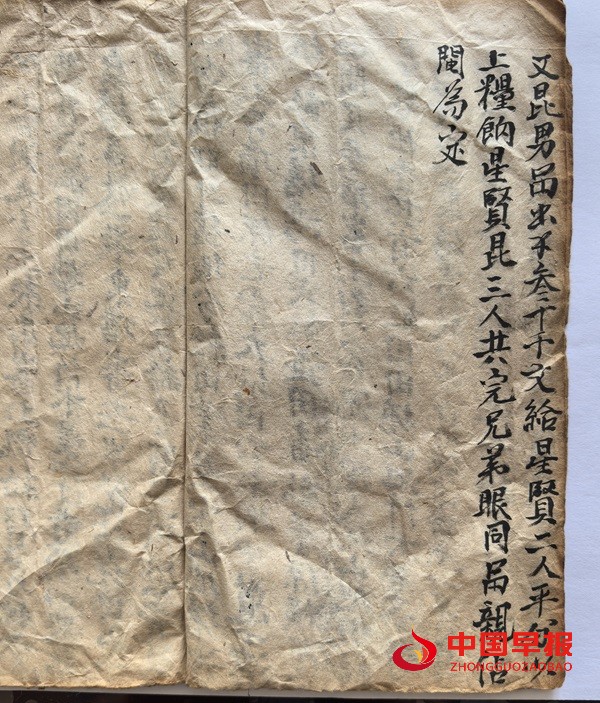 又昆男出叁千十文給星賢二人平分以
上糧餉星賢昆三人共完兄弟眼同親佔
為定
中国早报
ZHONGGUOZAOBAO